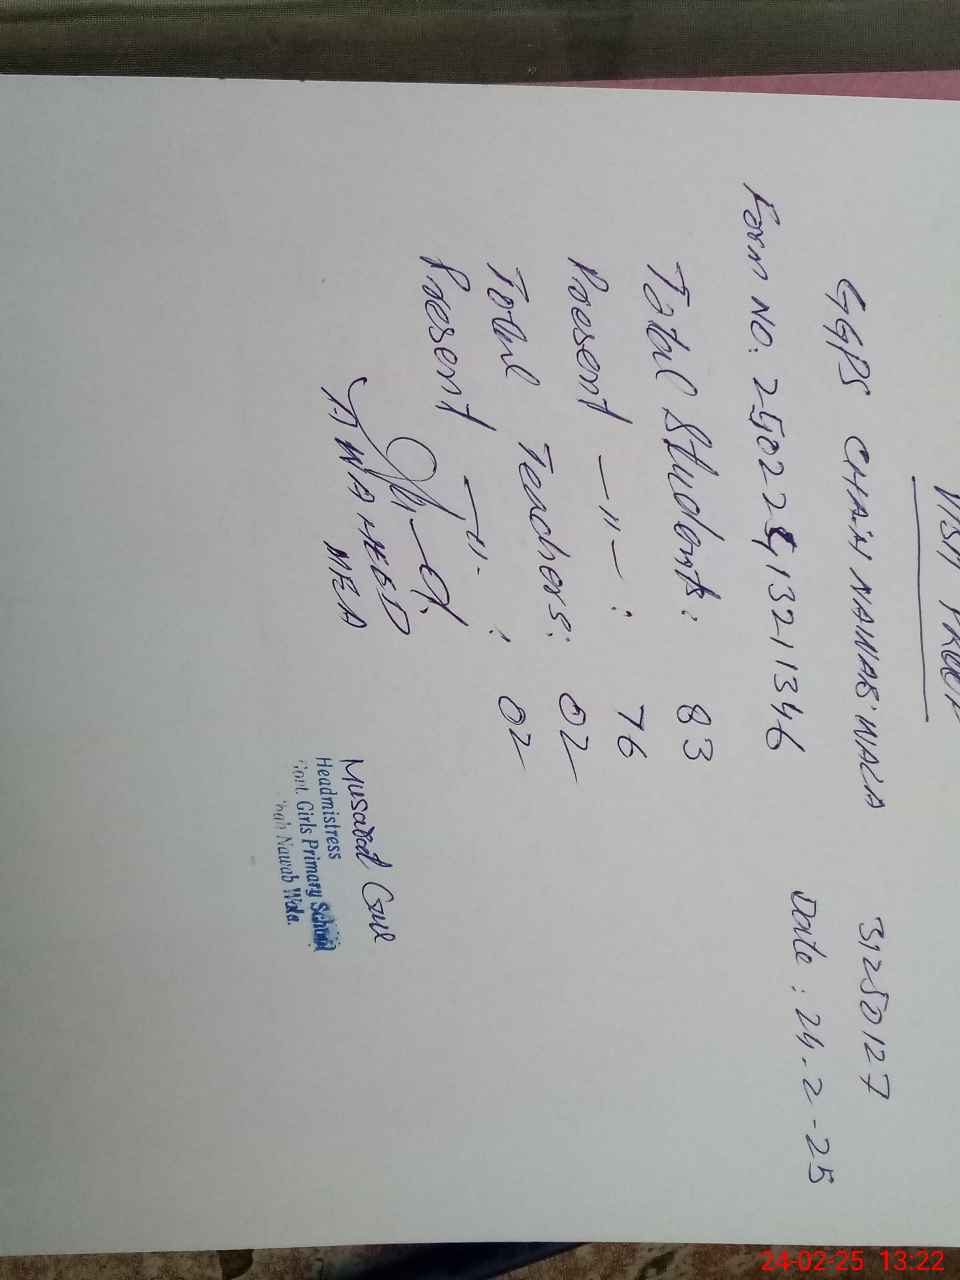 VISIT PROOF
GGPS CHAH NAWAB WALA 31250127
Form No. 25022413211346 Date : 24-2-25
Total Students : 83
Present -"- : 76
Total Teachers : 02
Present -"- : 02
AHMED
MEA
Musarat Gul
Headmistress
Govt. Girls Primary School
Chah Nawab Wala.
24-02-25 13:22